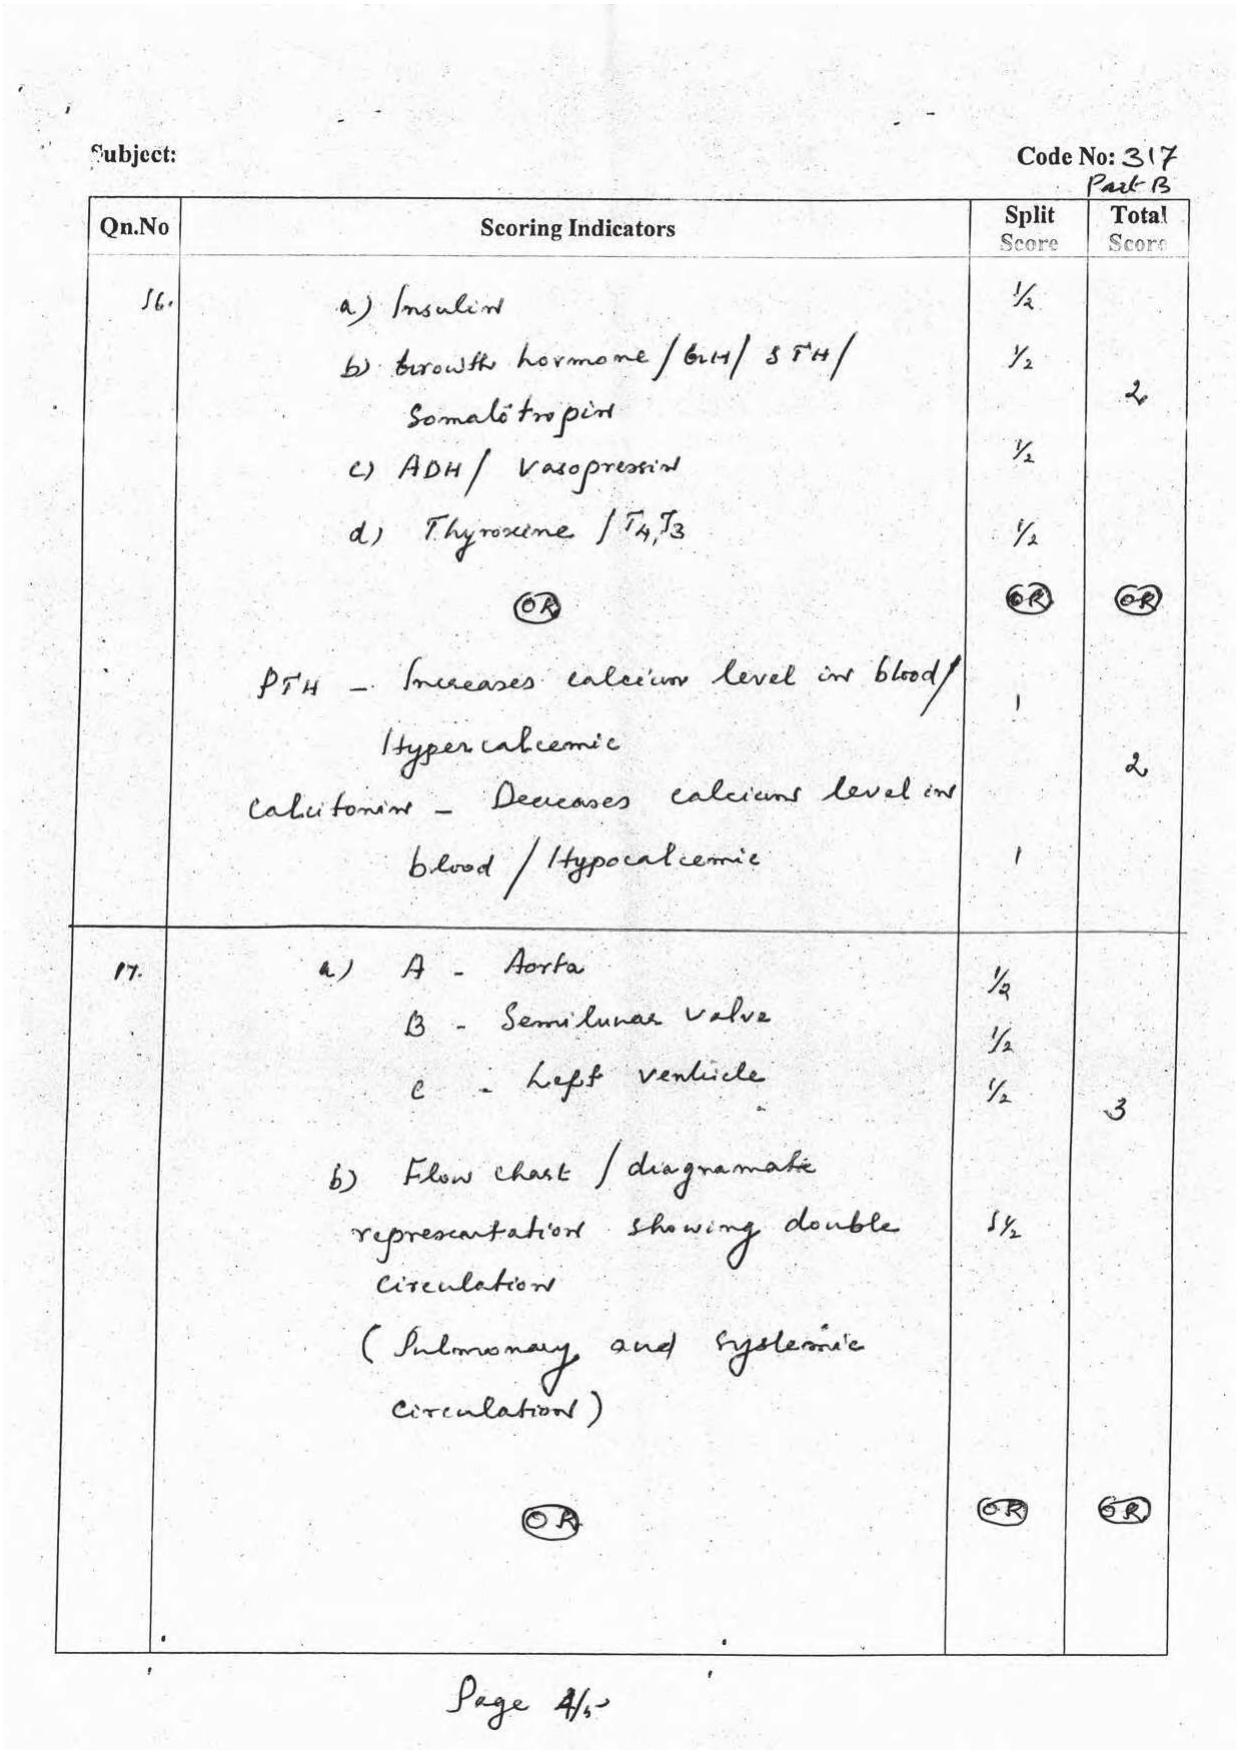 Subject:
Code No: 317
Part B
Qn.No Scoring Indicators Split Score Total Score
16. a) Insulin 1/2
b) Growth hormone / GH / STH / 1/2
Somatotropin 2
c) ADH / Vasopressin 1/2
d) Thyroxine / T4, T3 1/2
OR OR OR
PTH - Increases calcium level in blood / 1
Hypercalcemic 2
Calcitonin - Decreases calcium level in
blood / Hypocalcemic 1
17. a) A - Aorta 1/2
B - Semilunar valve 1/2
C - Left ventricle 1/2
3
b) Flow chart / diagramatic
representation showing double 1 1/2
circulation
( Pulmonary and systemic
circulation )
OR OR OR
Page 4/5